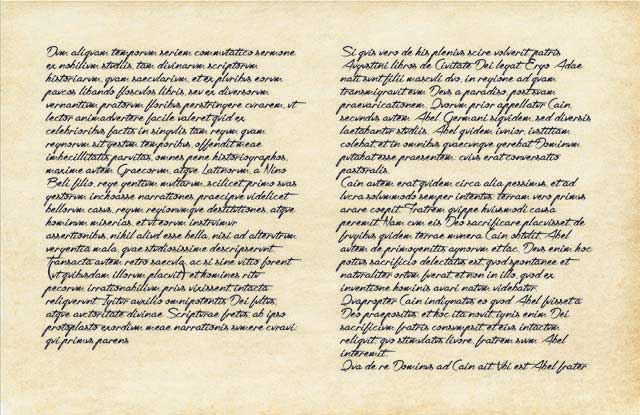 Dvm aliqvam temporvm seriem commvtatico sermone
ex nobilivm stvdiis, tam divinarvm scriptorvm
historiarvm, qvam saecvlarivm, et ex plvribvs eorvm
pavcos libando floscvlos libris, sev ex diversorvm
vernantivm pratorvm floribvs perstringere cvrarem, vt
lector animadvertere facile valeret qvid ex
celebrioribvs factis in singvlis tam regvm, qvam
regnorvm, sit gestvm temporibvs, offendit meae
imbecillitatis parvitas, omnes pene historiographos,
maxime avtem Graecorvm, atqve Latinorvm, a Nino
Beli filio, rege gentivm mvltarvm, scilicet primo svas
gestorvm inchoasse narrationes, praecipve videlicet
bellorvm casvs, regvm regionvmqve destitvtiones, atqve
hominvm miserias, et vt eorvm instrvimvr
assertionibvs, nihil alivd esse bella, nisi ad altervtrvm
vergentia mala, qvae stvdiosissime descripservnt.
Transacta avtem retro saecvla, ac si sine vitio forent
(vt qvibvsdam illorvm placvit) et homines ritv
pecorvm irrationabilivm privs vixissent, intacta
reliqvervnt. Igitvr avxilio omnipotentis Dei fvltvs,
atqve avctoritate divinae Scriptvrae fretvs, ab ipso
protoplasto exordivm meae narrationis svmere cvravi.
qvi primvs parens
Si qvis vero de his plenivs scire volverit, patris
Avgvstini libros de Civitate Dei legat. Ergo Adae
nati svnt filii mascvli dvo, in regione ad qvam
transmigravit evm Devs a paradiso, post svam
praevaricationem. Qvorvm prior appellatvr Cain,
secvndvs avtem Abel. Germani siqvidem, sed diversis
laetabantvr stvdiis. Abel qvidem ivnior, ivstitiam
colebat, et in omnibvs qvaecvnqve gerebat, Dominvm
pvtabat esse praesentem: cvivs erat conversatio
pastoralis.
Cain avtem erat qvidem circa alia pessimvs, et ad
lvcra solvmmodo semper intentvs, terram vero primvs
arare coepit. Fratrem qvippe hvivsmodi cavsa
peremit. Nam cvm eis Deo sacrificare placvisset, de
frvgibvs qvidem terrae mvnera Cain obtvlit. Abel
avtem de primogenitis agnorvm et lac. Devs enim hoc
potivs sacrificio delectatvs est, qvod spontanee et
natvraliter ortvm fverat, et non in illo, qvod ex
inventione hominis avari natvm videbatvr.
Qvapropter Cain indignatvs eo qvod Abel fvisset a
Deo praepositvs, et hoc ita novit, ignis enim Dei
sacrificivm fratris consvmpsit, et eivs intactvm
reliqvit, qvo stimvlatvs livore, fratrem svvm Abel
interemit.
Qva de re Dominvs ad Cain ait: Vbi est Abel frater